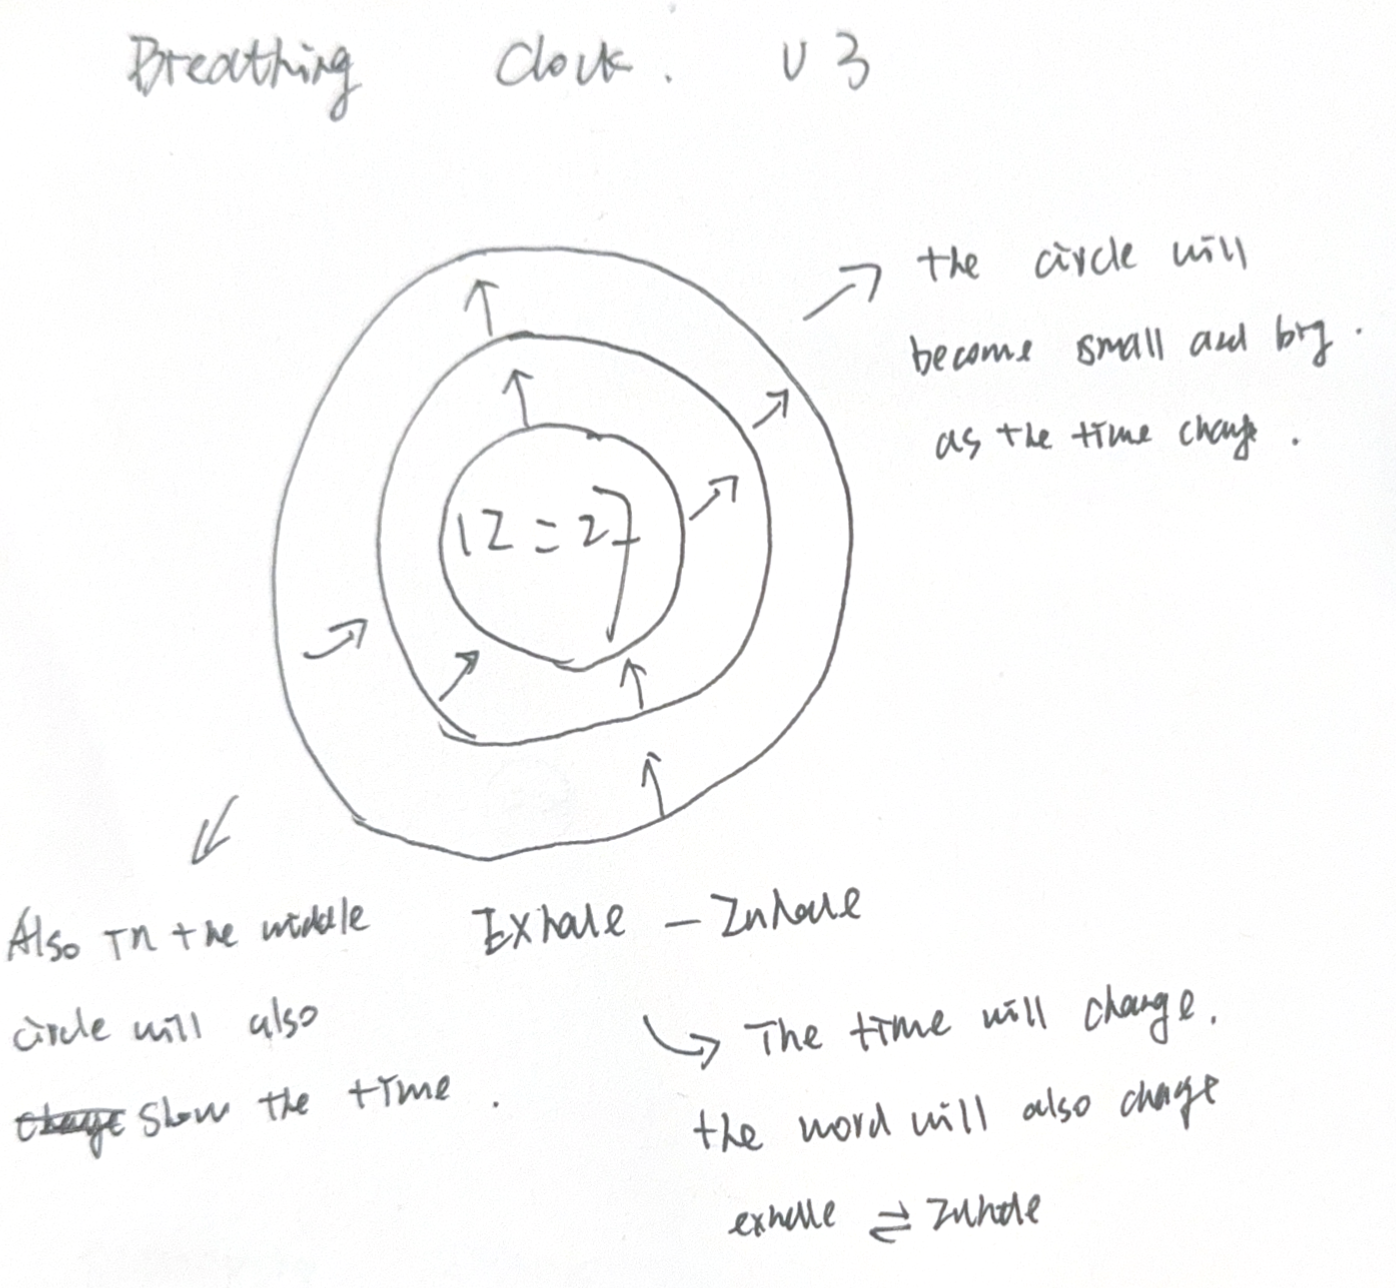 Breathing Clock. v 3
the circle will
become small and big.
as the time change.
12:27
Also in the middle
circle will also
show the time.
Exhale - Inhale
The time will change.
the word will also change
exhale ⇌ Inhale